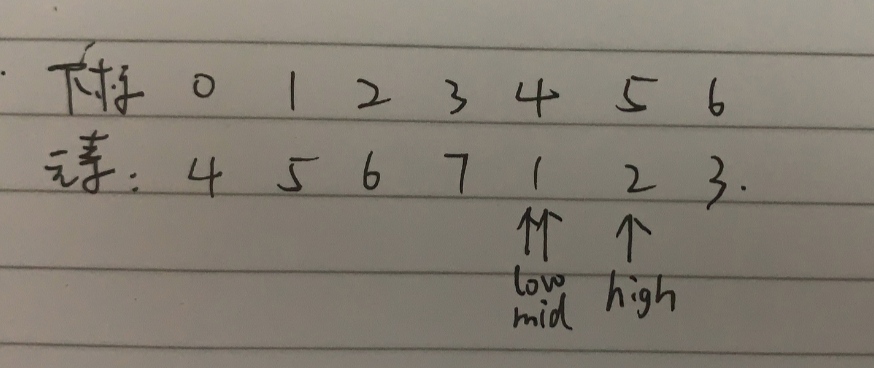 下标 0 1 2 3 4 5 6
元素: 4 5 6 7 1 2 3.
↑↑ ↑
low high
mid